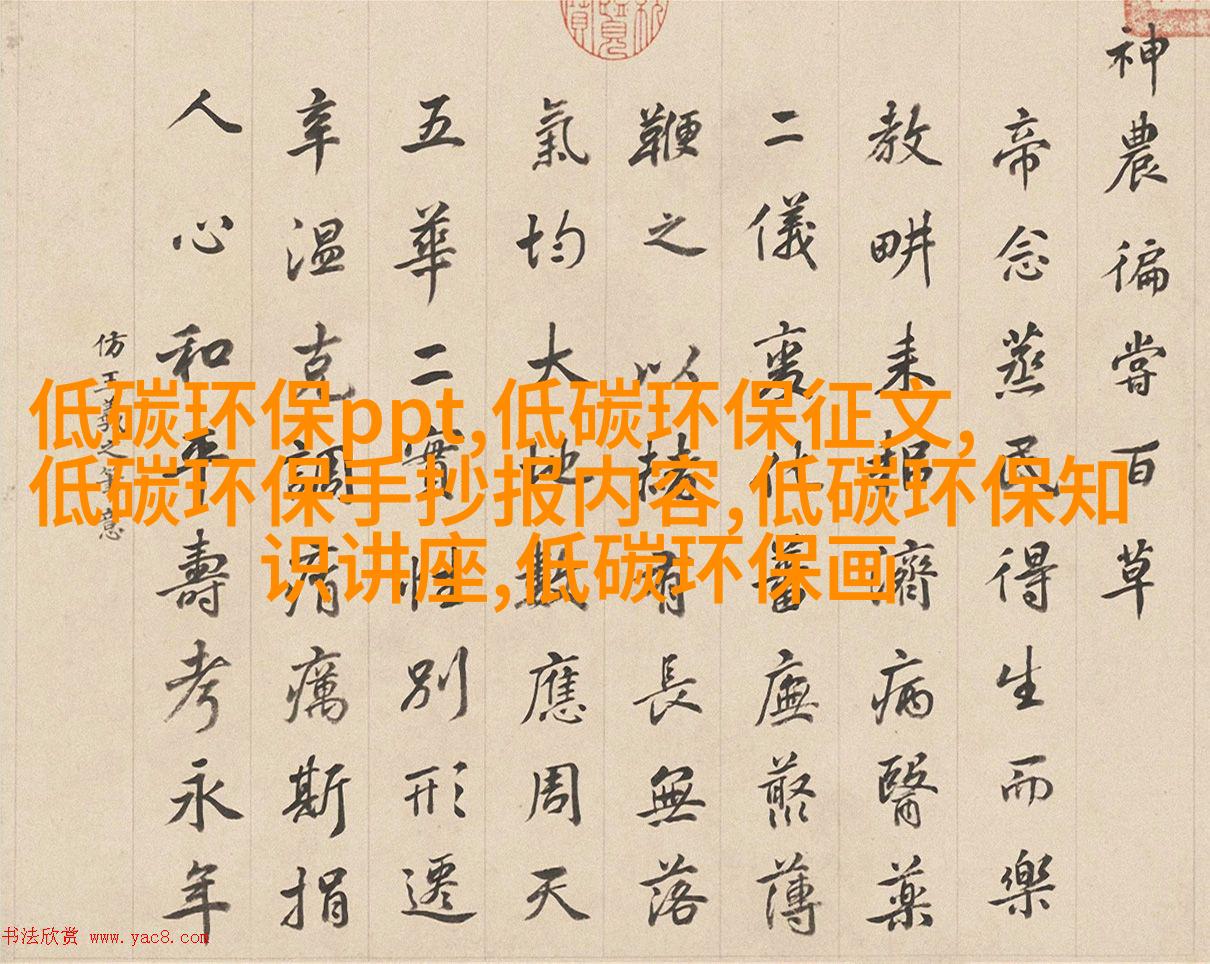 神農徧嘗百草
帝念蒸民得生而樂
教畊耒耜濟病醫藥
二儀蕃廡藂薄
鞭之以赭有長無落
氣均大地數應周天
五華二實性別形遷
辛温克調癘斯捐
人心和平壽考永年
仿王羲之筆意
低碳环保ppt,低碳环保征文,
低碳环保手抄报内容,低碳环保知
识讲座,低碳环保画
书法欣赏 www.yac8.com